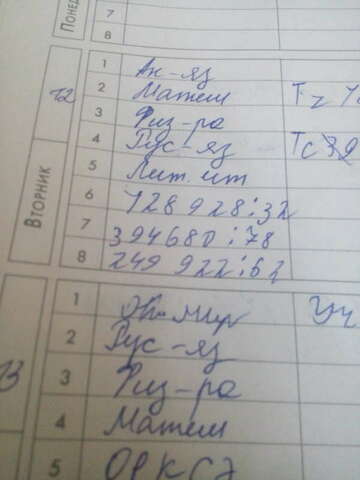 Понед
7
8
Вторник
12
1 Ан-яз
2 Матем
3 Физ-ра
4 Рус-яз
5 Лит.чт
6 128 928:32
7 394680:78
8 249 922:62
13
1 Ок-мир Уч
2 Рус-яз
3 Физ-ра
4 Матем
5 ОРКСЭ